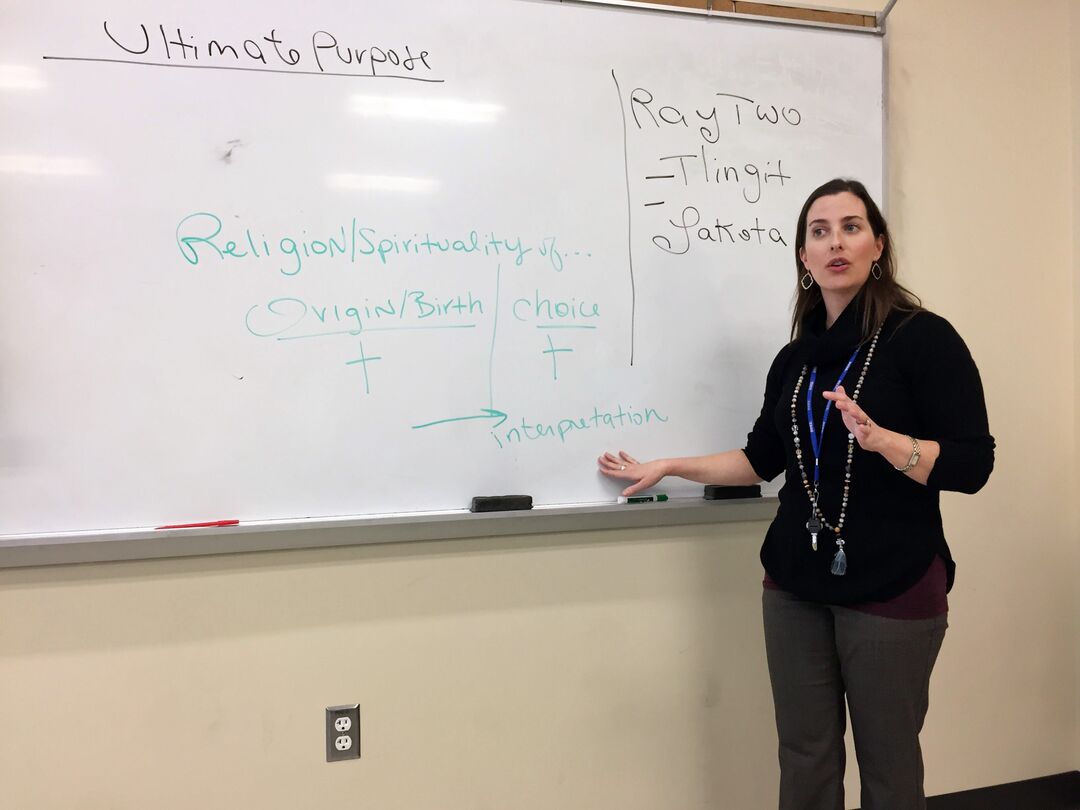 Ultimate Purpose
Ray Two
- Tlingit
- Lakota
Religion/Spirituality of...
Origin/Birth
choice
interpretation